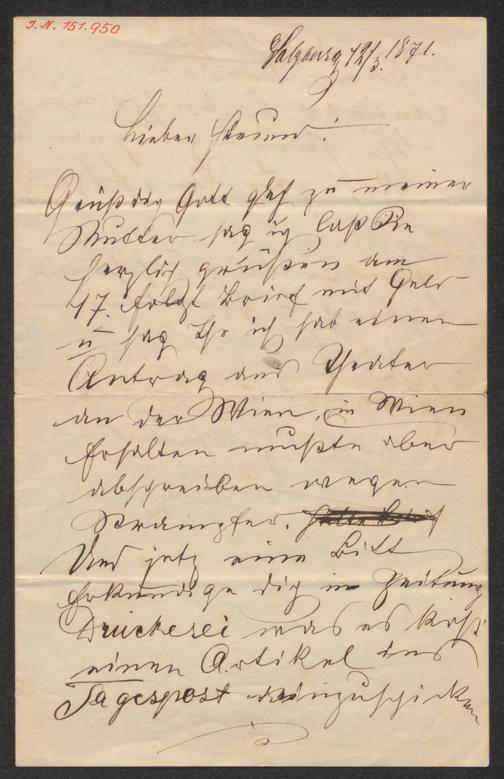 J.N. 151.950
Salzburg 12/3. 1871.
Lieber Freund!
Grüß dig Gott geh zu meiner
Mutter sag ig laß Sie
herzlich grüßen am
17. folgt Brief mit Geld
u sag Ihr ich hab einen
Antrag ans Theater
an der Wien, in Wien
erhalten mußte aber
abschreiben wegen
Strampfer.
Und jetz eine Bitt
erkundige dig in Zeitung
Druckerei was es kost
einen Artikel ins
Tagespost einzuschicken